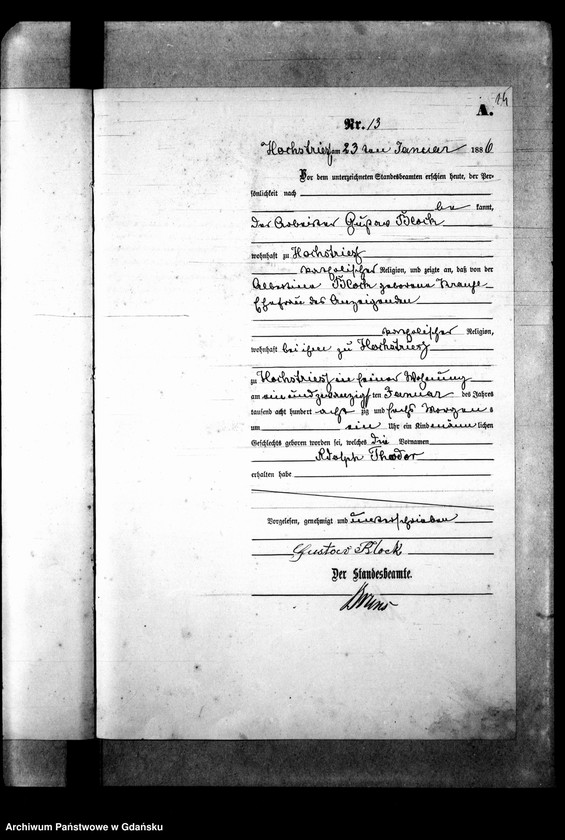 14
A.
Nr. 13
Hochstriess am 23 ten Januar 1886
Vor dem unterzeichneten Standesbeamten erschien heute, der Per-
sönlichkeit nach
be kannt,
der Arbeiter Gustav Block
wohnhaft zu Hochstriess
katholischer Religion, und zeigte an, daß von der
Albertina Block geborene
Ehefrau des Anzeigenden
katholischer Religion,
wohnhaft bei ihm zu Hochstriess
zu Hochstriess in seiner Wohnung
am ein und zwanzigsten Januar des Jahres
tausend acht hundert acht zig und sechs Morgens
um ein Uhr ein Kind männlichen
Geschlechts geboren worden sei, welches die Vornamen
Adolph Theodor
erhalten habe
Vorgelesen, genehmigt und unterschrieben
Gustav Block
Der Standesbeamte.
Archiwum Państwowe w Gdańsku